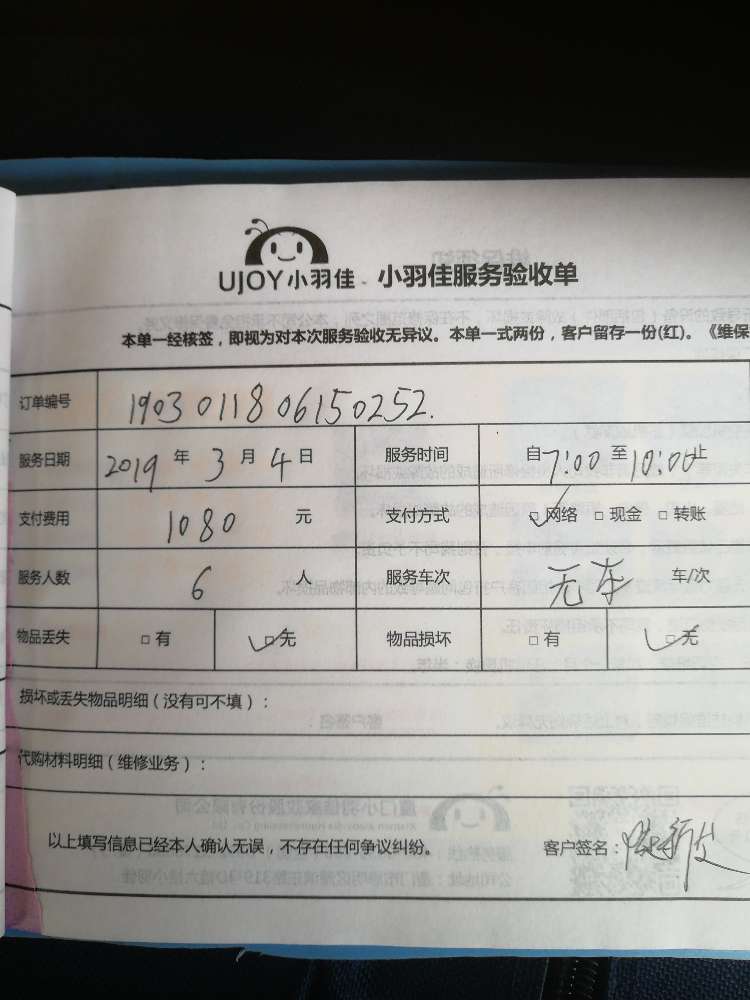 UJOY小羽佳 小羽佳服务验收单
本单一经核签，即视为对本次服务验收无异议。本单一式两份，客户留存一份(红)。《维保
订单编号 1903011806150252.
服务日期 2019 年 3 月 4 日 服务时间 自7:00至10:00止
支付费用 1080 元 支付方式 □网络 □现金 □转账
服务人数 6 人 服务车次 无车 车/次
物品丢失 □有 □无 物品损坏 □有 □无
损坏或丢失物品明细（没有可不填）：
代购材料明细（维修业务）：
以上填写信息已经本人确认无误，不存在任何争议纠纷。 客户签名：